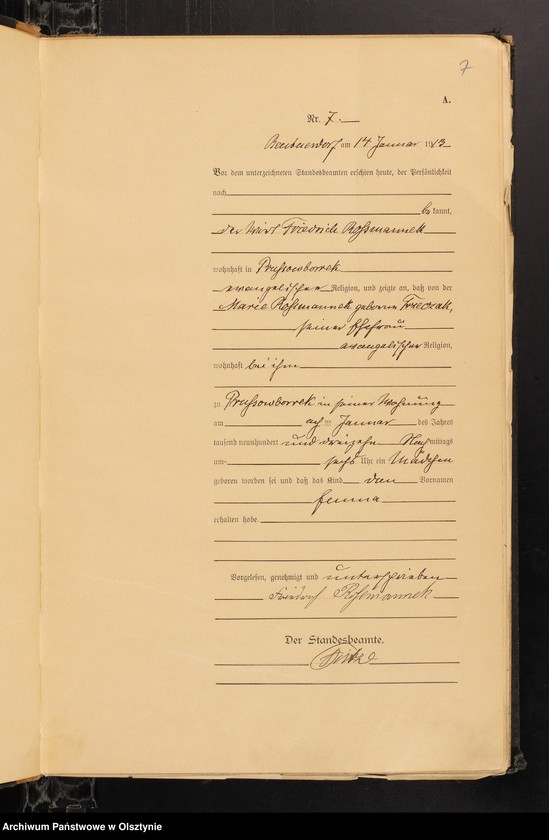 7
A.
Nr. 7.
am 14 Januar 1913
Vor dem unterzeichneten Standesbeamten erschien heute, der Persönlichkeit
nach
be kannt,
der Wirt Friedrich Roßmannek
wohnhaft in Prussowborrek
evangelischer Religion, und zeigte an, daß von der
Marie Roßmannek geborene
seiner Ehefrau
evangelischer Religion,
wohnhaft bei ihm
zu Prussowborrek in seiner Wohnung
am acht ten Januar des Jahres
tausend neunhundert und dreizehn Nachmittags
um sechs Uhr ein Mädchen
geboren worden sei und daß das Kind den Vornamen
Emma
erhalten habe.
Vorgelesen, genehmigt und unterschrieben
Friedrich Roßmannek
Der Standesbeamte.
Archiwum Państwowe w Olsztynie